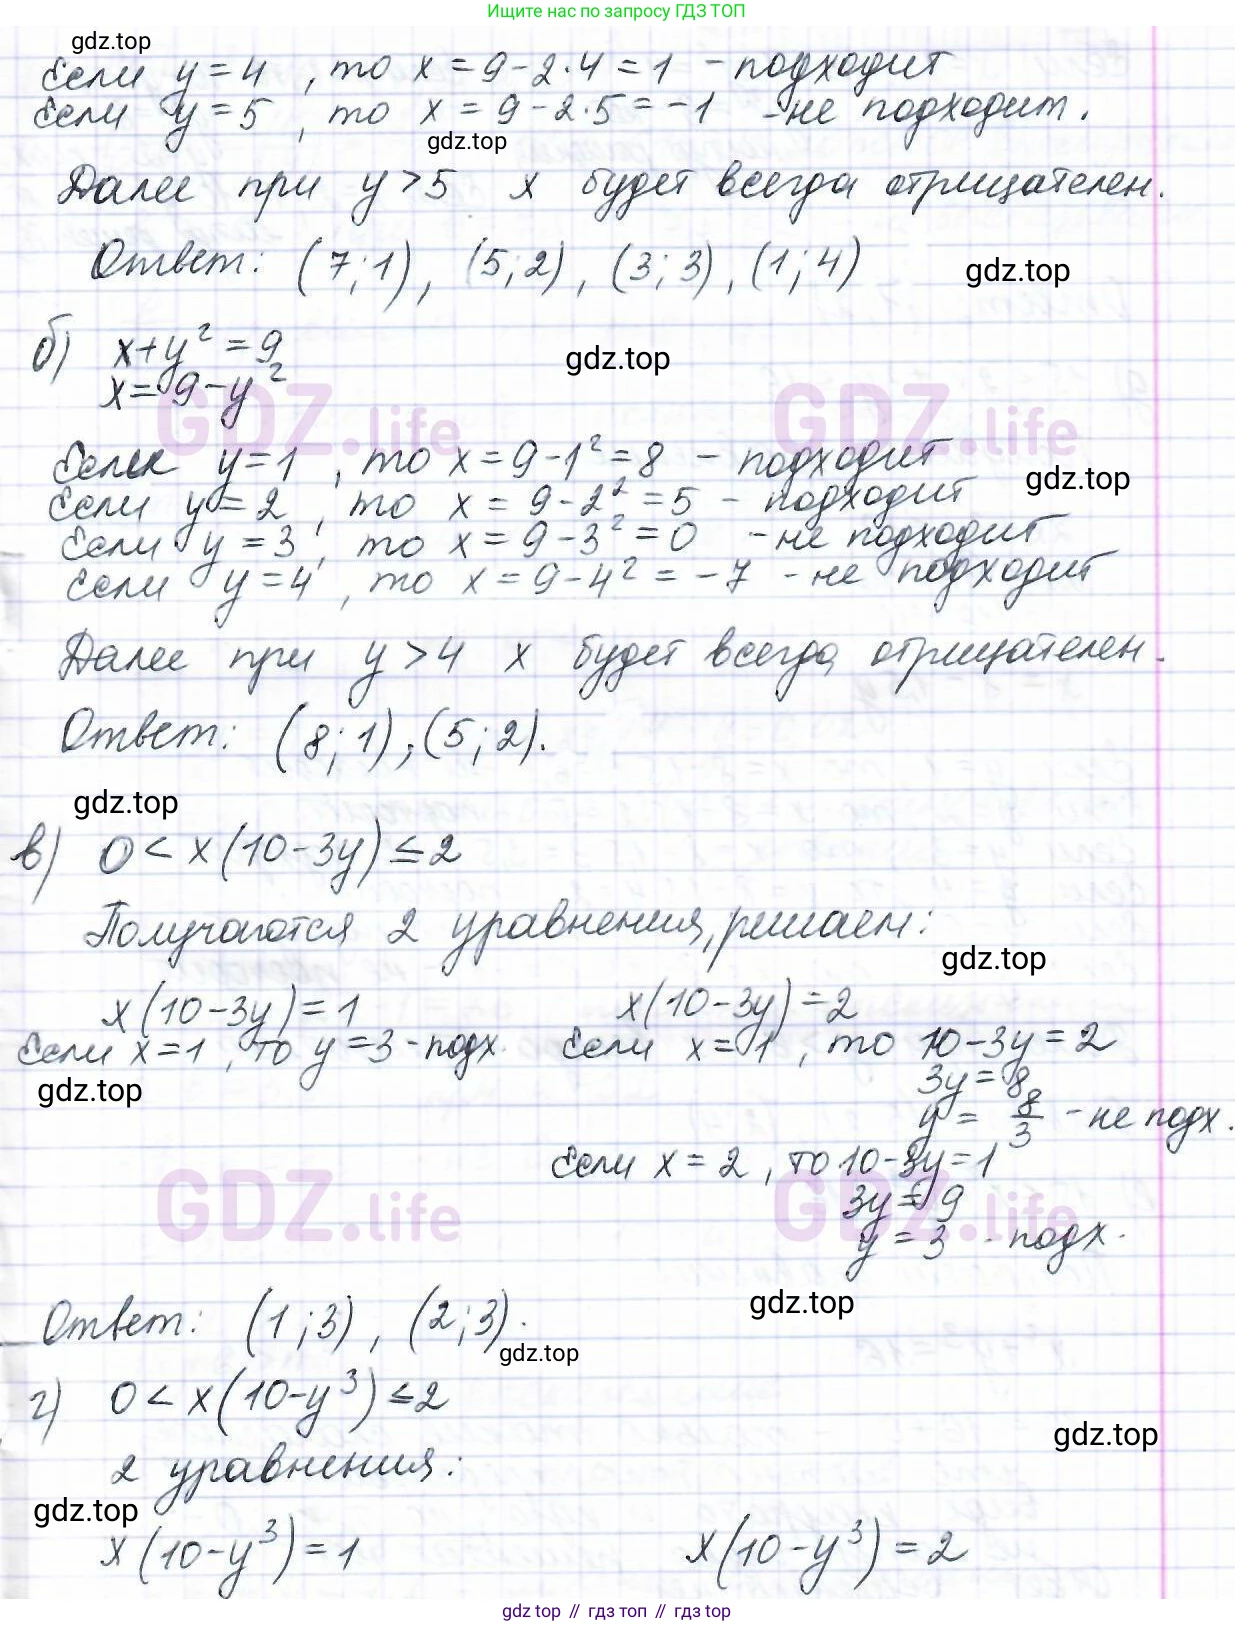 Ищите нас по запросу ГДЗ ТОП
gdz.top
Если y = 4 , то x = 9 - 2·4 = 1 - подходит
Если y = 5 , то x = 9 - 2·5 = -1 - не подходит.
gdz.top
Далее при y > 5 x будет всегда отрицателен.
Ответ: (7;1), (5;2), (3;3), (1;4)
gdz.top
б) x + y² = 9
gdz.top
x = 9 - y²
GDZ.life GDZ.life
Если y = 1 , то x = 9 - 1² = 8 - подходит
gdz.top
Если y = 2 , то x = 9 - 2² = 5 - подходит
Если y = 3 , то x = 9 - 3² = 0 - не подходит
Если y = 4 , то x = 9 - 4² = -7 - не подходит
Далее при y > 4 x будет всегда отрицателен.
Ответ: (8;1), (5;2).
gdz.top
в) 0 < x(10 - 3y) ≤ 2
Получаются 2 уравнения, решаем:
gdz.top
x(10 - 3y) = 1 x(10 - 3y) = 2
Если x = 1 , то y = 3 - подх. Если x = 1 , то 10 - 3y = 2
gdz.top
3y = 8
y = 8/3 - не подх.
Если x = 2 , то 10 - 3y = 1
3y = 9
GDZ.life GDZ.life
y = 3 - подх.
gdz.top
Ответ: (1;3), (2;3).
gdz.top
г) 0 < x(10 - y³) ≤ 2
gdz.top
2 уравнения:
gdz.top
x(10 - y³) = 1 x(10 - y³) = 2
gdz.top // гдз топ // гдз.top